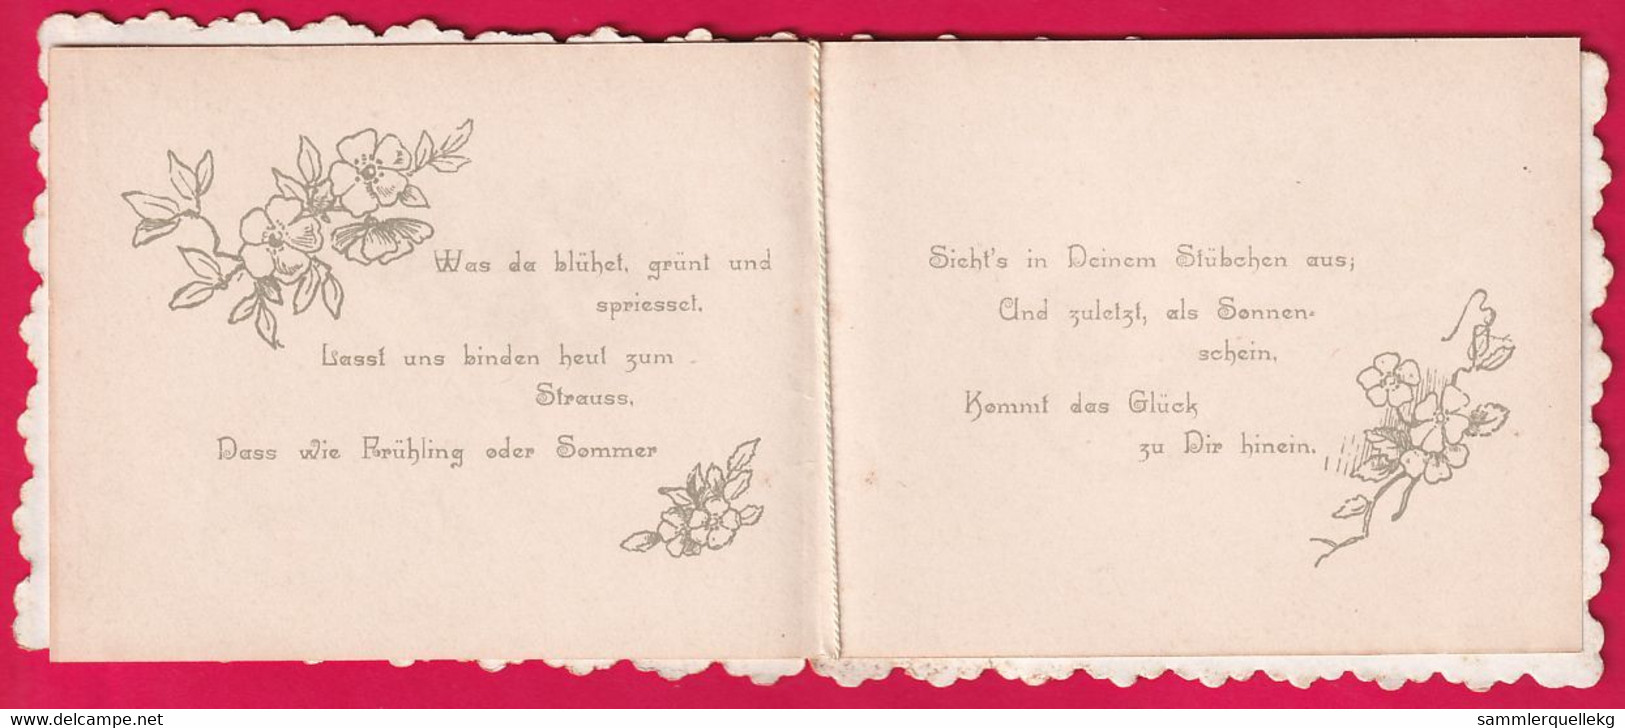 Was da blühet, grünt und
spriesset,
Lasst uns binden heut zum
Strauss,
Dass wie Frühling oder Sommer
Sieht's in Deinem Stübchen aus;
Und zuletzt, als Sonnen-
schein,
Kommt das Glück
zu Dir hinein.
www.delcampe.net
sammlerquellekg